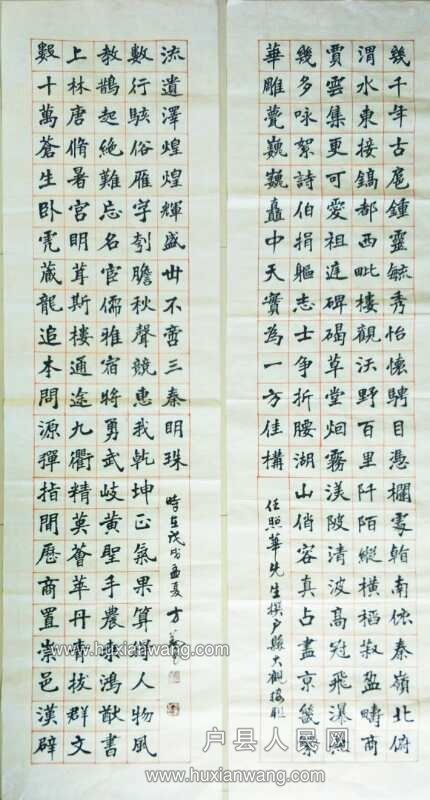 幾千年古扈鍾靈毓秀怡懷騁目憑欄處翰南依秦嶺北俯
渭水東接鎬都西毗樓觀沃野百里阡陌縱橫稻菽盈疇商
賈雲集更可愛祖庭碑碣草堂烟霧渼陂清波高冠飛瀑熙
幾多咏絮詩伯捐軀志士争折腰湖山俏容真占盡京畿繁
華雕甍巍巍矗中天實為一方佳構
任照華先生撰户縣大觀樓聯
數十萬蒼生卧虎藏龍追本問源彈指間歷商置崇邑漢辟
上林唐脩暑宮明葺斯樓通途九衢精英薈萃丹青拔群文
教鵲起絶難忘名宦儒雅宿將勇武岐黄聖手農桑鴻猷書
數行駭俗雁字刳膽秋聲競惠我乾坤正氣果算得人物風
流遺澤煌煌輝盛世不啻三秦明珠
時在戊戌孟夏方
www.huxianwang.com
户县人民网
www.huxianwang.com
www.huxianwang.com